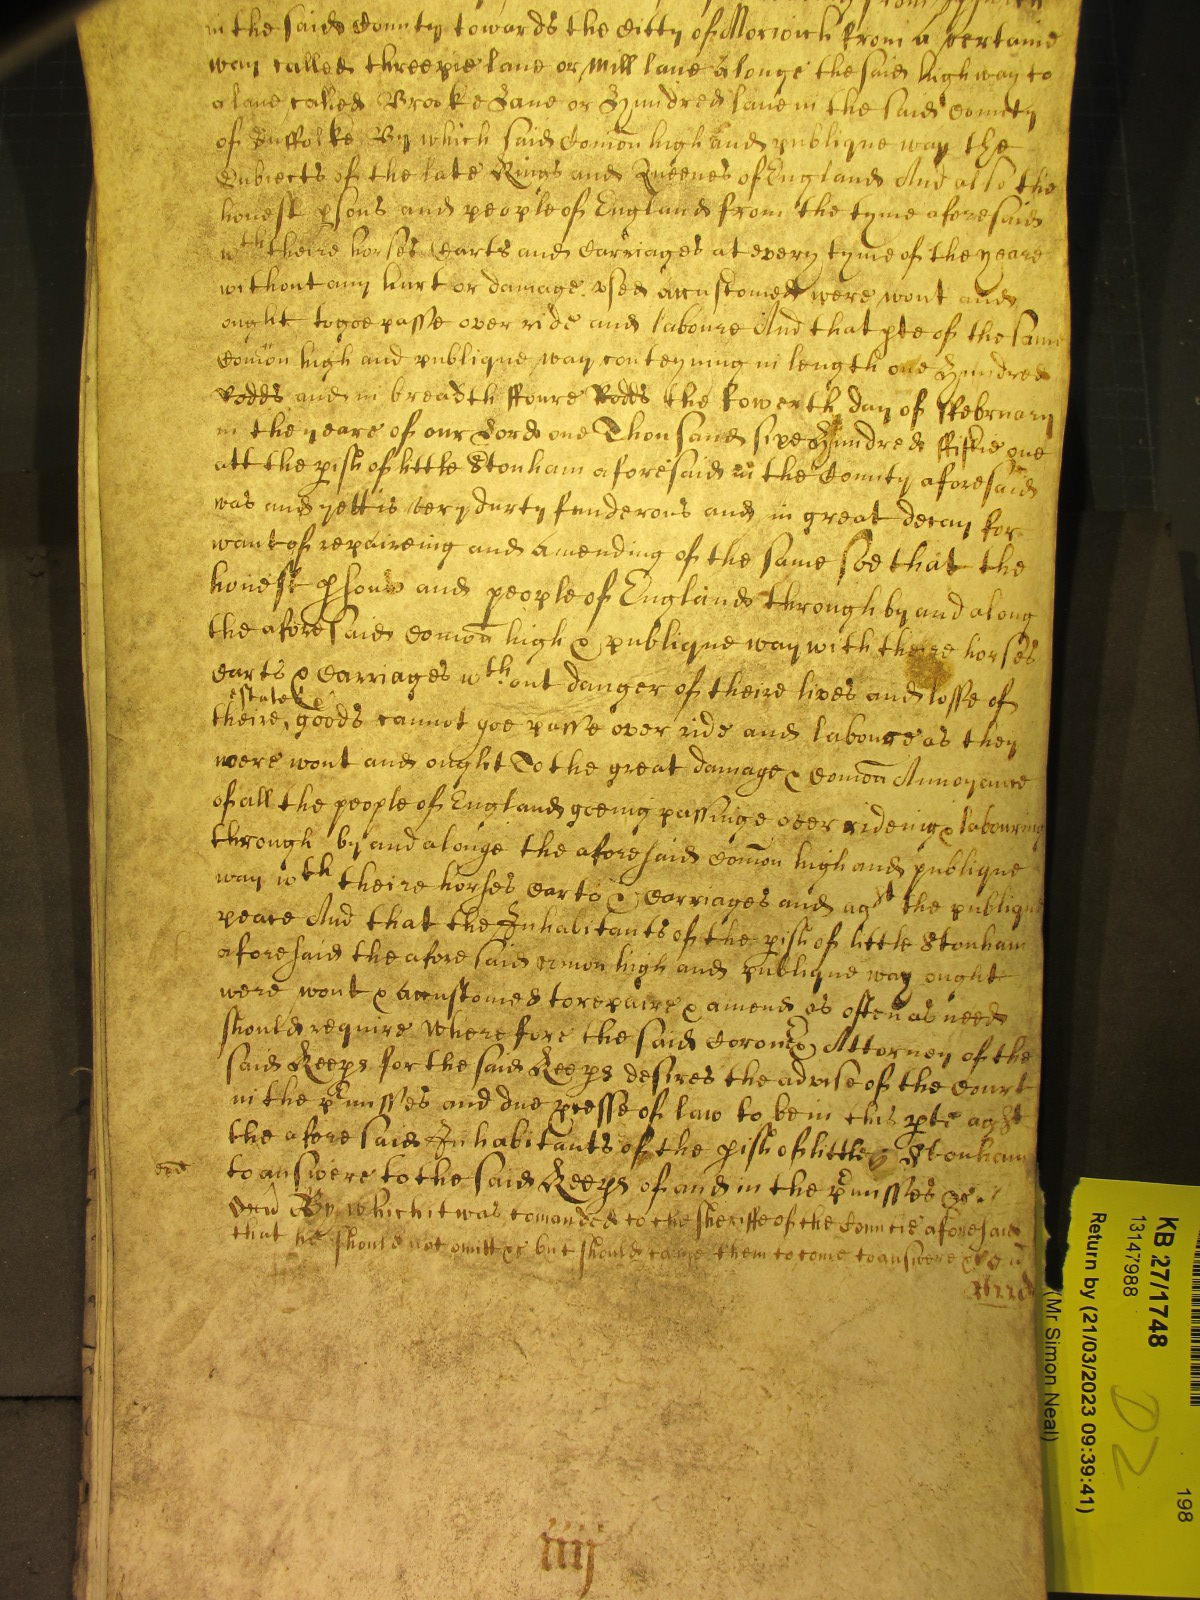 in the said County towards the Citty of Norwich from a certaine
way called threepie lane or Mill lane Alonge the said high way to
a lane called Brooke Lane or Hundred lane in the said County
of Suffolke By which said Comon high and publique way the
Subiects of the late Kings and Queenes of England And also the
honest psons and people of England from the tyme aforesaid
wth theire horses Carts and Carriages at every tyme of the yeare
without any hurt or damage vsed accustomed were wont and
ought to goe passe over ride and laboure And that pte of the same
Comon high and publique way conteyning in length one Hundred
Rodds and in breadth ffoure Rodds the fowerth day of ffebruary
in the yeare of our Lord one Thousand sixe Hundred ffiftie one
att the pish of little Stonham aforesaid in the County aforesaid
was and yett is very durty funderous and in great decay for
want of repaireing and Amending of the same Soe that the
honest psons and people of England through by and along
the aforesaid Comon high & publique way with theire horses
Carts & Carriages wthout danger of theire lives and losse of
estates &
theire goods cannot goe passe over ride and laboure as they
were wont and ought To the great damage & Comon Annoyance
of all the people of England goeing passinge over rideing & labouring
through by and alonge the aforesaid Comon high and publique
way wth theire horses Carts & Carriages and agst the publique
peace And that the Inhabitants of the pish of little Stonham
aforesaid the aforesaid comon high and publique way ought
were wont & accustomed to repaire & amend as often as need
should require Wherefore the said Coroner & Attorney of the
said Keeps for the said Keeps desires the advise of the Court
in the pmisses and due pcesse of law to be in this pte agst
the aforesaid Inhabitants of the pish of little Stonham
to answere to the said Keeps of and in the pmisses &c.
By which it was comanded to the Sheriffe of the Countie aforesaid
that he should not omitt &c but should cause them to come to answere &c
iiij
KB 27/1748
13147988
Return by (21/03/2023 09:39:41)
(Mr Simon Neal)
198
D2